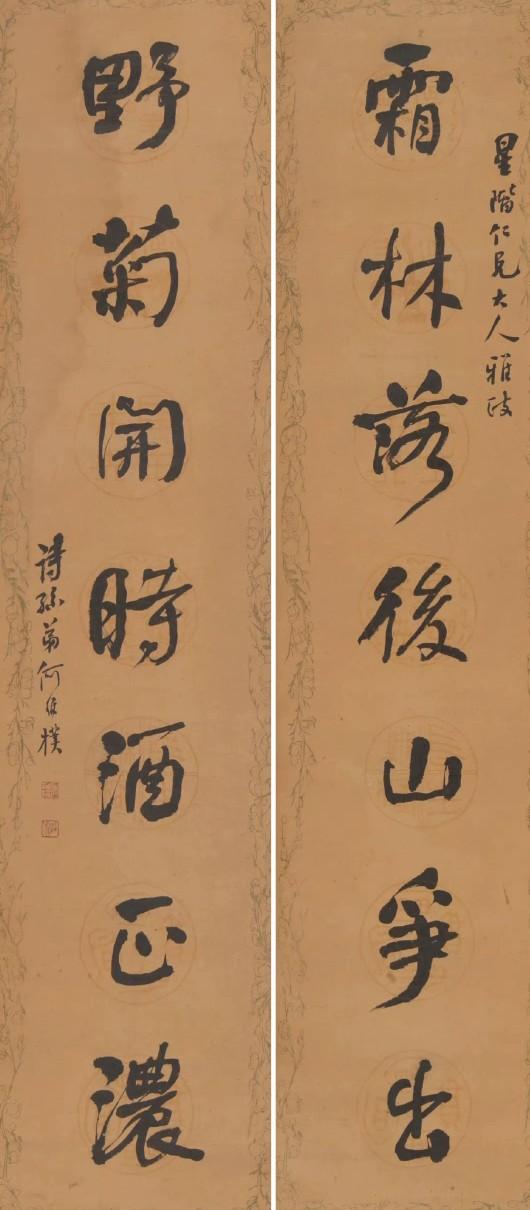 星階仁兄大人雅政
霜林落後山爭出
野菊開時酒正濃
詩孫弟何維樸